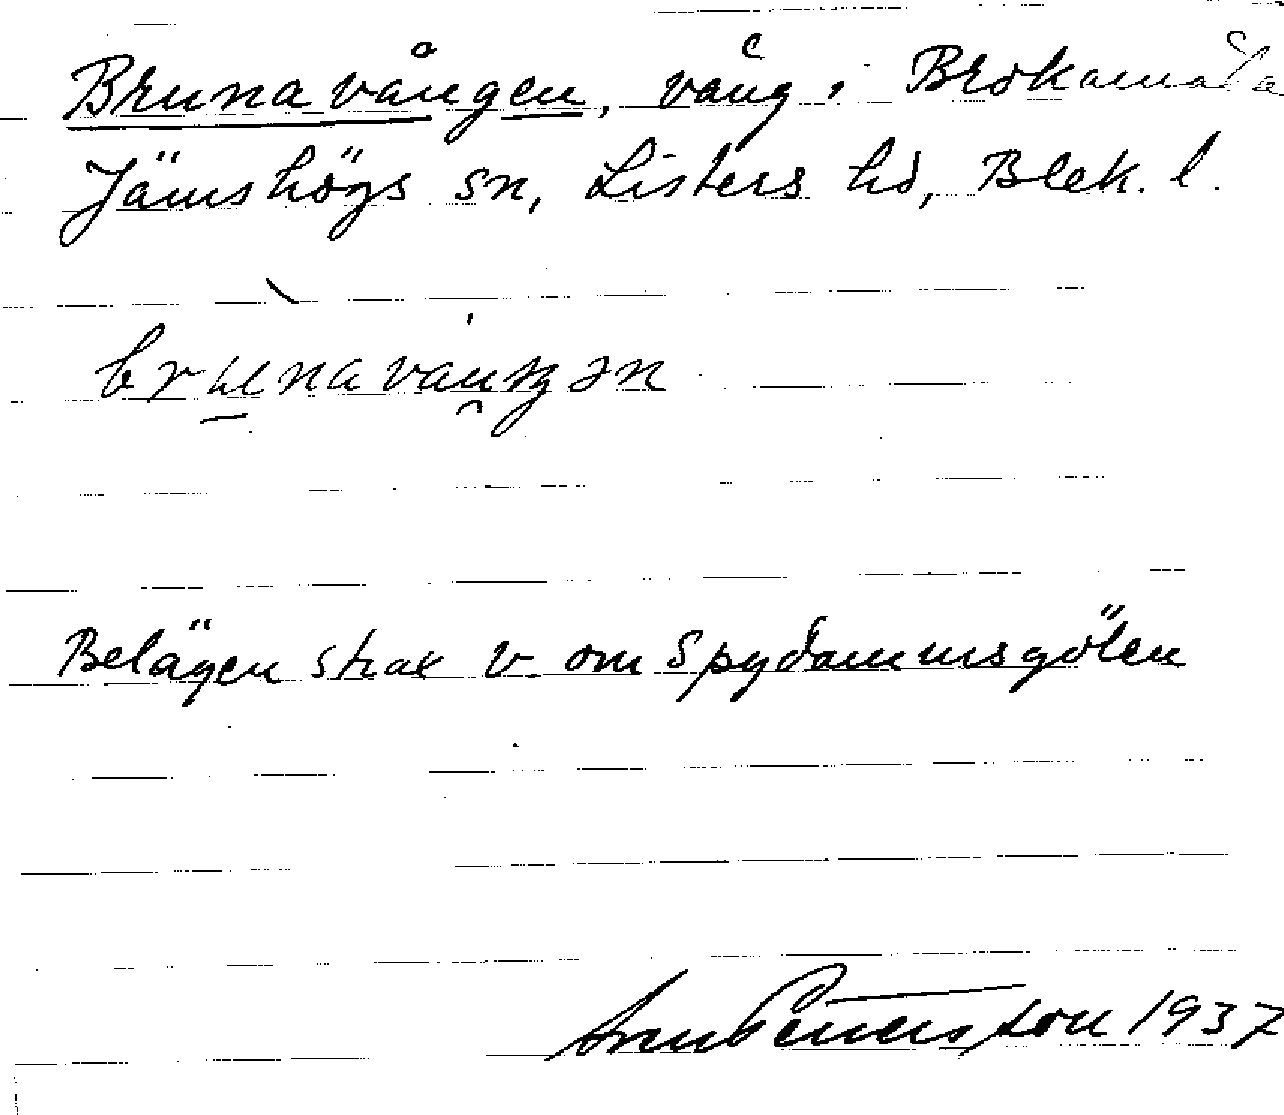 Brunavången, vång i Brokamåla
Jämshögs sn, Listers hd, Blek. l.
Belägen strax v. om Spydammsgölen
1937